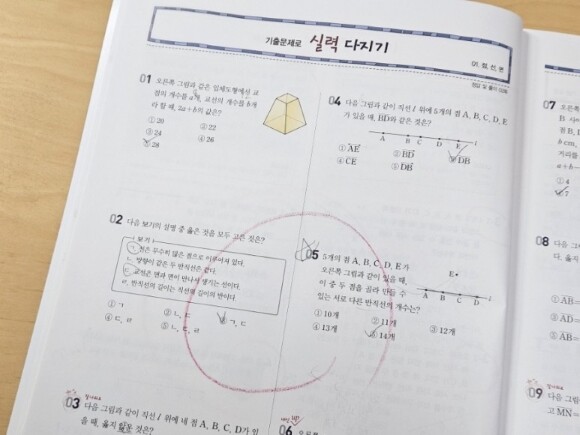 기출문제로 실력 다지기
01. 점, 선, 면
정답 및 풀이
01 오른쪽 그림과 같은 입체도형에서 교
점의 개수를 a개, 교선의 개수를 b개
라 할 때, 2a+b의 값은?
① 20 ② 22
③ 24 ④ 26
⑤ 28
02 다음 보기의 설명 중 옳은 것을 모두 고른 것은?
보기
ㄱ. 선은 무수히 많은 점으로 이루어져 있다.
ㄴ. 방향이 같은 두 반직선은 같다.
ㄷ. 교선은 면과 면이 만나서 생기는 선이다.
ㄹ. 반직선의 길이는 직선의 길이의 반이다.
① ㄱ ② ㄴ, ㄷ ③ ㄱ, ㄷ
④ ㄷ, ㄹ ⑤ ㄴ, ㄷ, ㄹ
03 다음 그림과 같이 직선 l 위에 네 점 A, B, C, D가 있
을 때, 옳지 않은 것은?
04 다음 그림과 같이 직선 l 위에 5개의 점 A, B, C, D, E
가 있을 때, BD와 같은 것은?
A B C D E l
① AE ② BD ③ DB
④ CE ⑤ DB
05 5개의 점 A, B, C, D, E가
오른쪽 그림과 같이 있을 때,
이 중 두 점을 골라 만들 수
있는 서로 다른 반직선의 개수는?
E
A B C D
① 10개 ② 11개 ③ 12개
④ 13개 ⑤ 14개
06 오른쪽
07 오른쪽 그
B 사이
점 B,
b cm,
거리를
a+b
① 4
④ 7
08 다음 그림
다. 옳지
① AB=
② AD=
③ AB=
09 다음 그림
고 MN=